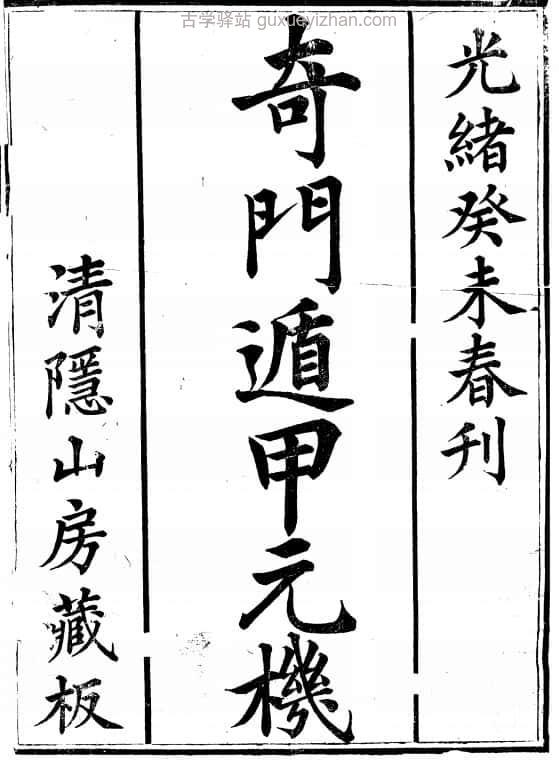 古学驿站 guxueyizhan.com
光緒癸未春刊
奇門遁甲元機
清隱山房藏板